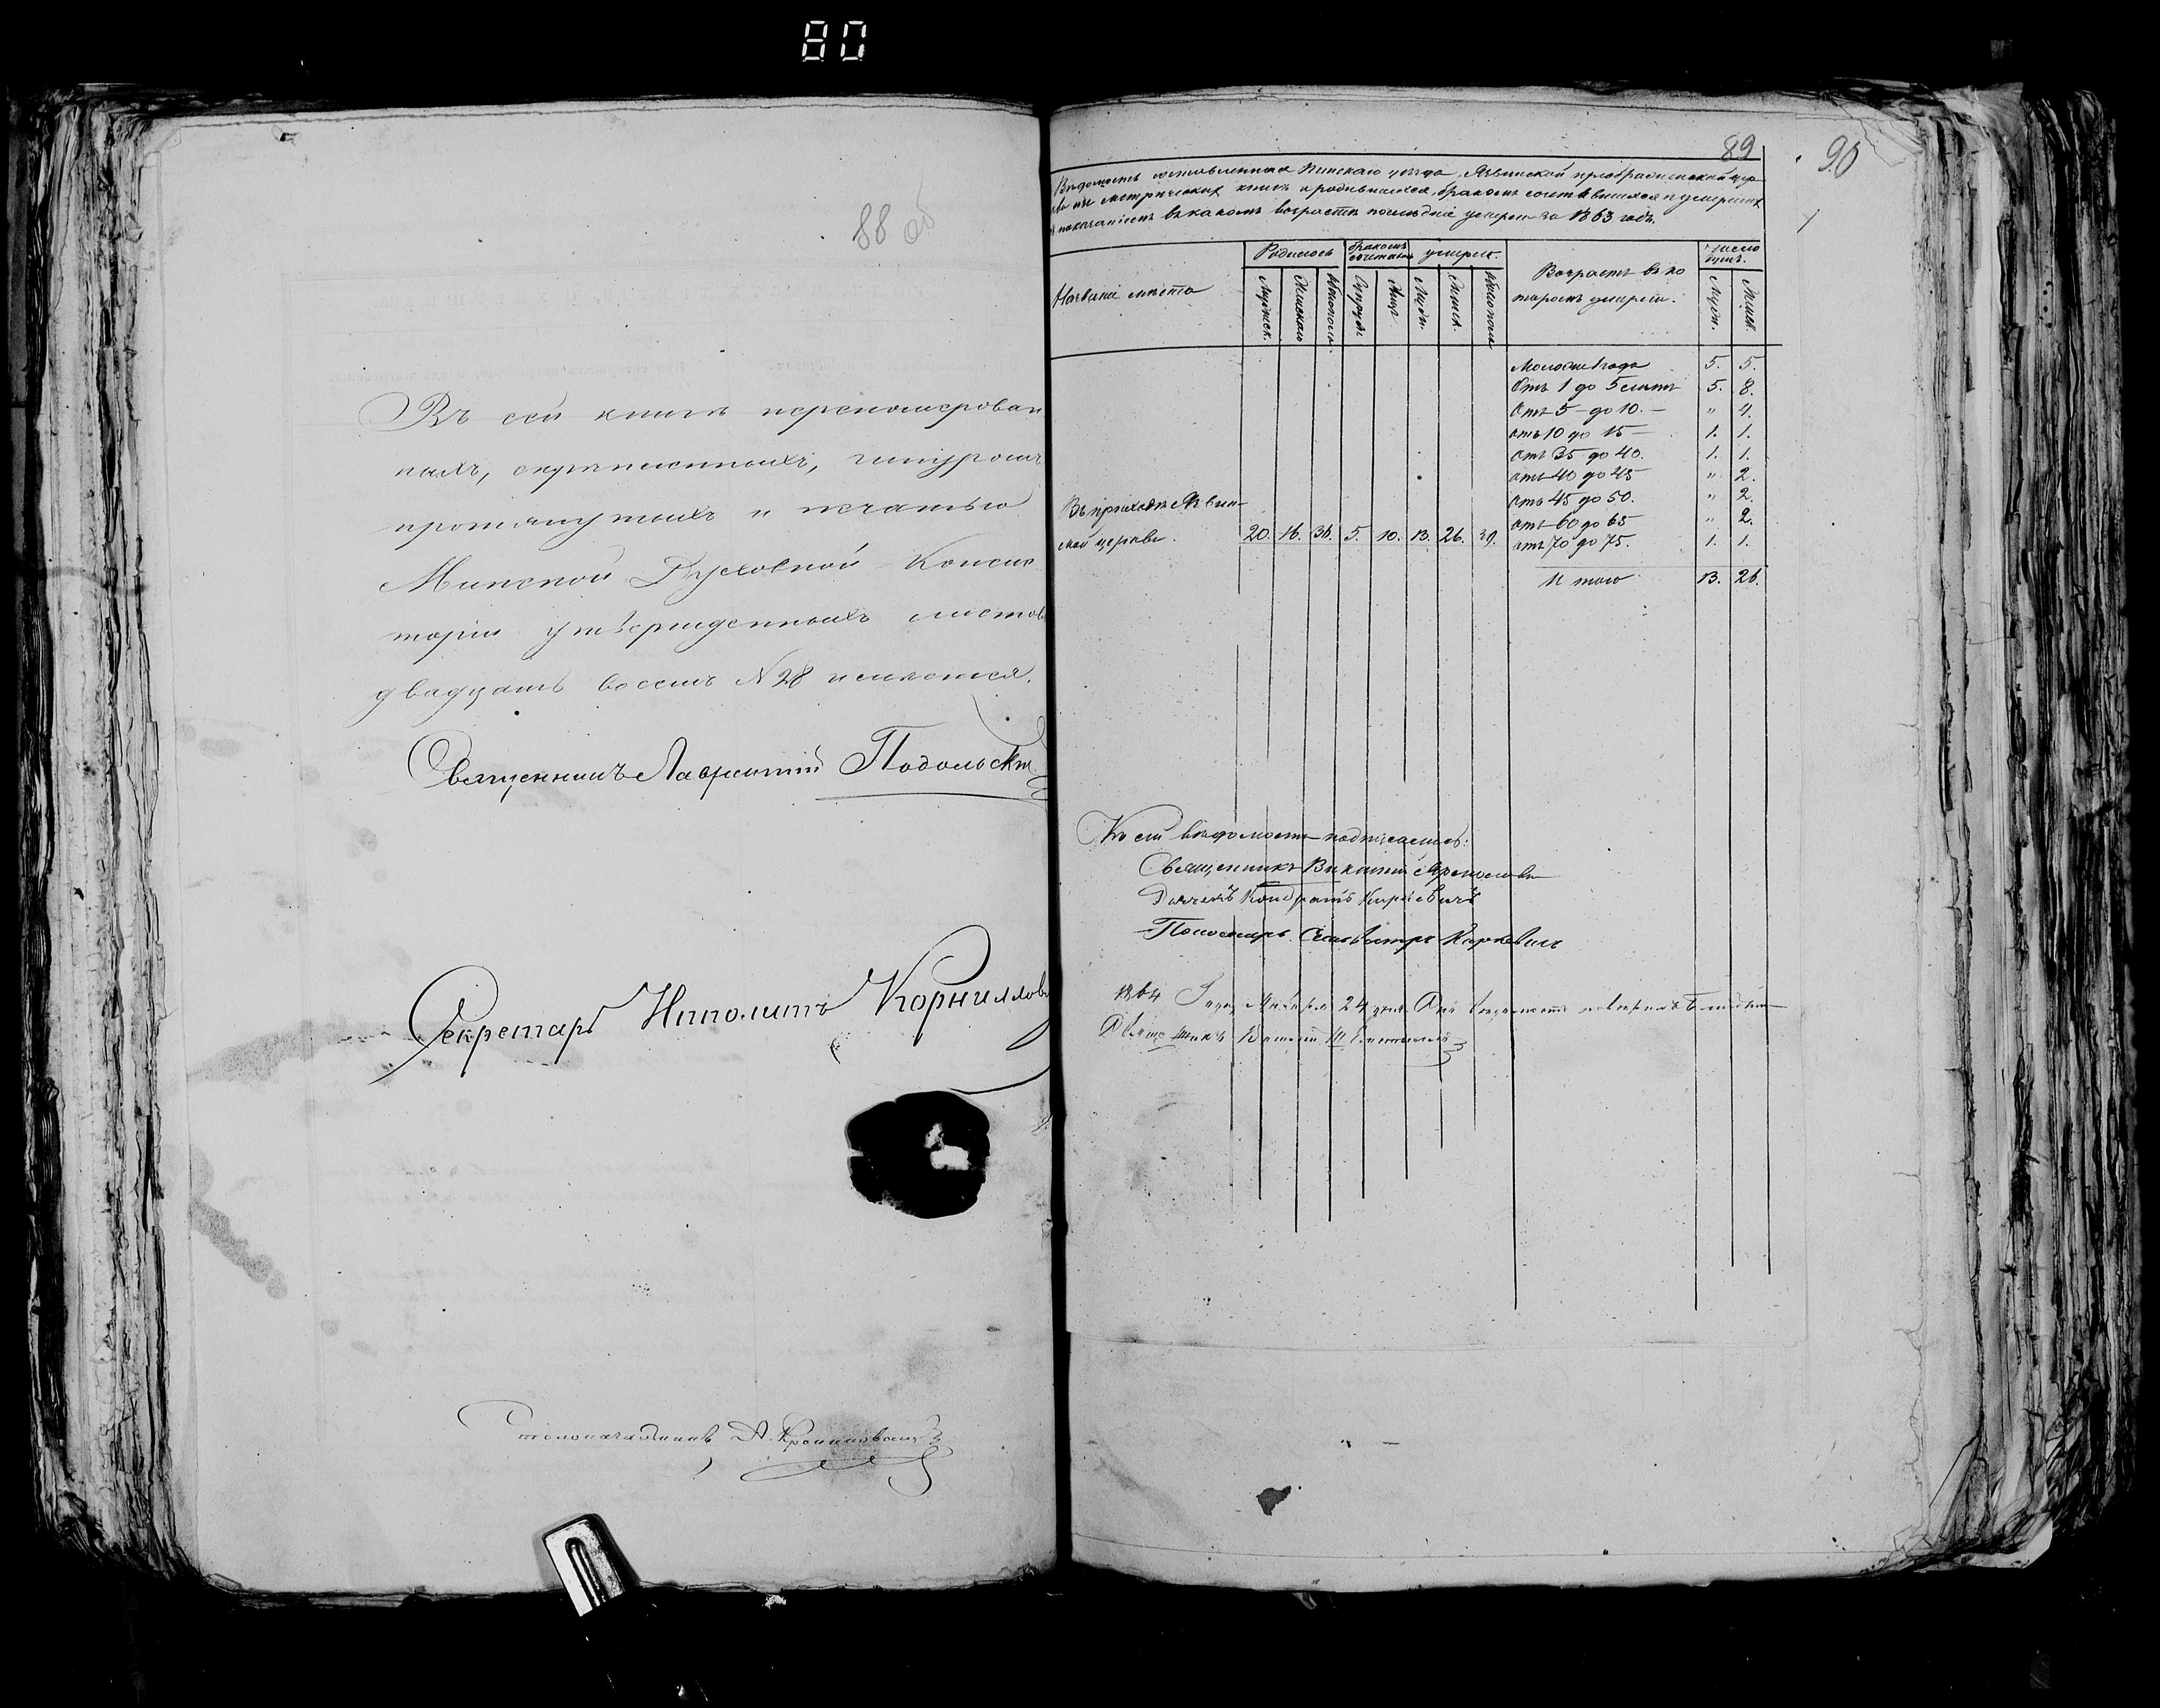 80
88 об
Въ сей книгѣ перенумерован
ныхъ, скрѣпленныхъ, шнуромъ
протянутыхъ и печатью
Минской Духовной Консис
торіи утвержденныхъ листовъ
двадцать восемь N 28 имѣются.
Священникъ Лаврентій Подольскій
Секретарь Ипполитъ Корниллов
Столоначальникъ А.
89
90
Вѣдомость составленная Пинскаго уѣзда, Язвинской преображенской цер-
кви изъ метрическихъ книгъ о родившихся, бракомъ сочетавшихся и умершихъ
съ показаніемъ въ какомъ возрастѣ послѣдніе умерли за 1863 годъ.
Названіе мѣста
Родилось
бракомъ сочетались
умерло.
Возрастъ въ ко
торомъ умерли.
Число душъ.
Мужск.
Женскаго
Обоего пола.
Супруж
Лицъ
Мужн.
Женск.
Обоего пола
Мужн.
Женск.
Моложе 1 года 5. 5.
Отъ 1 до 5 лѣтъ 5. 8.
Отъ 5 — до 10. — " 4.
отъ 10 до 15 — 1. 1.
Отъ 35 до 40. 1. 1.
отъ 40 до 45 " 2.
отъ 45 до 50. " 2.
отъ 60 до 65 " 2.
отъ 70 до 75. 1. 1.
Итого 13. 26.
Въ приходѣ Язвин-
ской церкви. 20. 16. 36. 5. 10. 13. 26. 39.
Къ сей вѣдомости подписались:
Священникъ Викентій
Дьячекъ Кондратъ Киркевичъ
Пономарь Сильвестръ Киркевичъ
1864 Года Января 24 дня